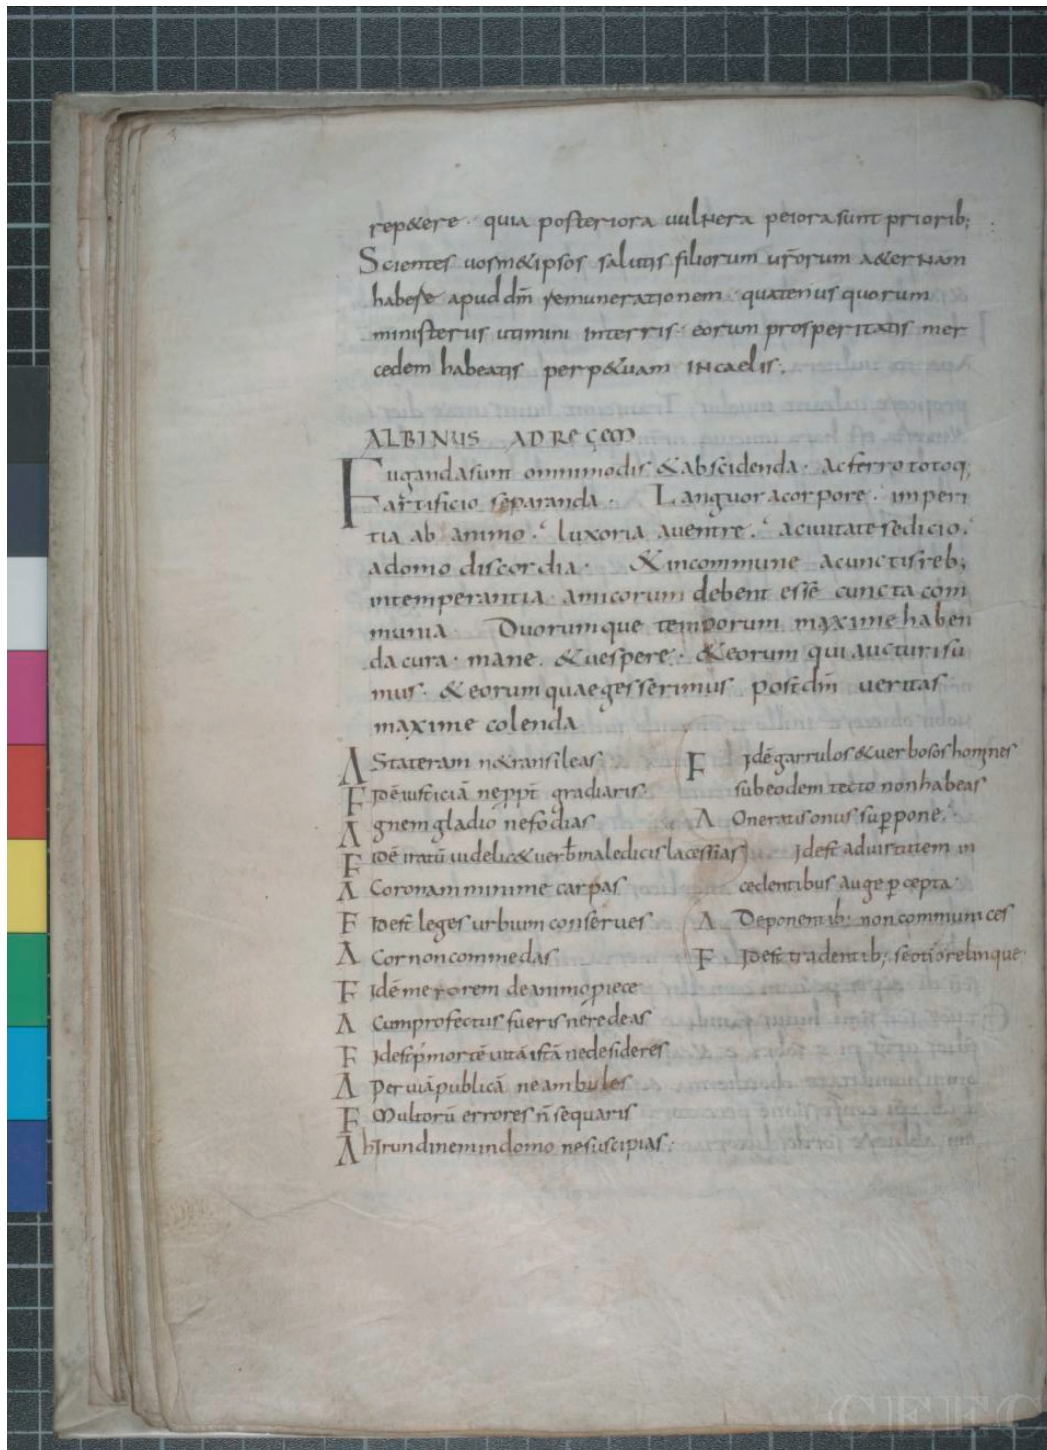 rep&ere · quia posteriora uulnera peiora sunt priorib;
Scientes uosm&ipsos salutis filiorum ur̄orum a&ernam
habere apud dm̄ remunerationem · quatenus quorum
ministeriis utimini interris · eorum prosperitatis mer
cedem habeatis perp&uam incaelis ·
ALBINUS AD REGEM
Fugandasunt omnimodis & abscidenda · acferro totoq;
artificio separanda · Languor acorpore · imperi
tia ab animo · luxoria auentre · aciuitate sedicio ·
adomo discordia · &incommune acunctis reb;
intemperantia · amicorum debent esse cuncta com
munia Duorumque temporum maxime haben
da cura · mane · &uespere · &eorum qui aucturi su
mus · &eorum quae gesserimus post dm̄ ueritas
maxime colenda
A Stateram n&ransileas
F idē iusticiā ne ppt gradiaris ·
A gnem gladio ne fodias
F idē iratū uidelic& uerb̄ maledicis lacessias
A Coronam minime carpas
F idest leges urbium conserues
A Cor non commedas
F idē merorem de animo piece
A Cum profectus fueris ne redeas
F idest p mortē uitā istā ne desideres
A Per uiā publicā ne ambules
F Multorū errores n̄ sequaris
A hirundinem in domo ne suscipias ·
F idē garrulos & uerbosos homines
sub eodem tecto non habeas
A Oneratis onus suppone ·
idest ad uirtutem in
cedentibus auge pcepta ·
A Deponentib; non communices
F idest tradentib; se otio relinque
CEEC